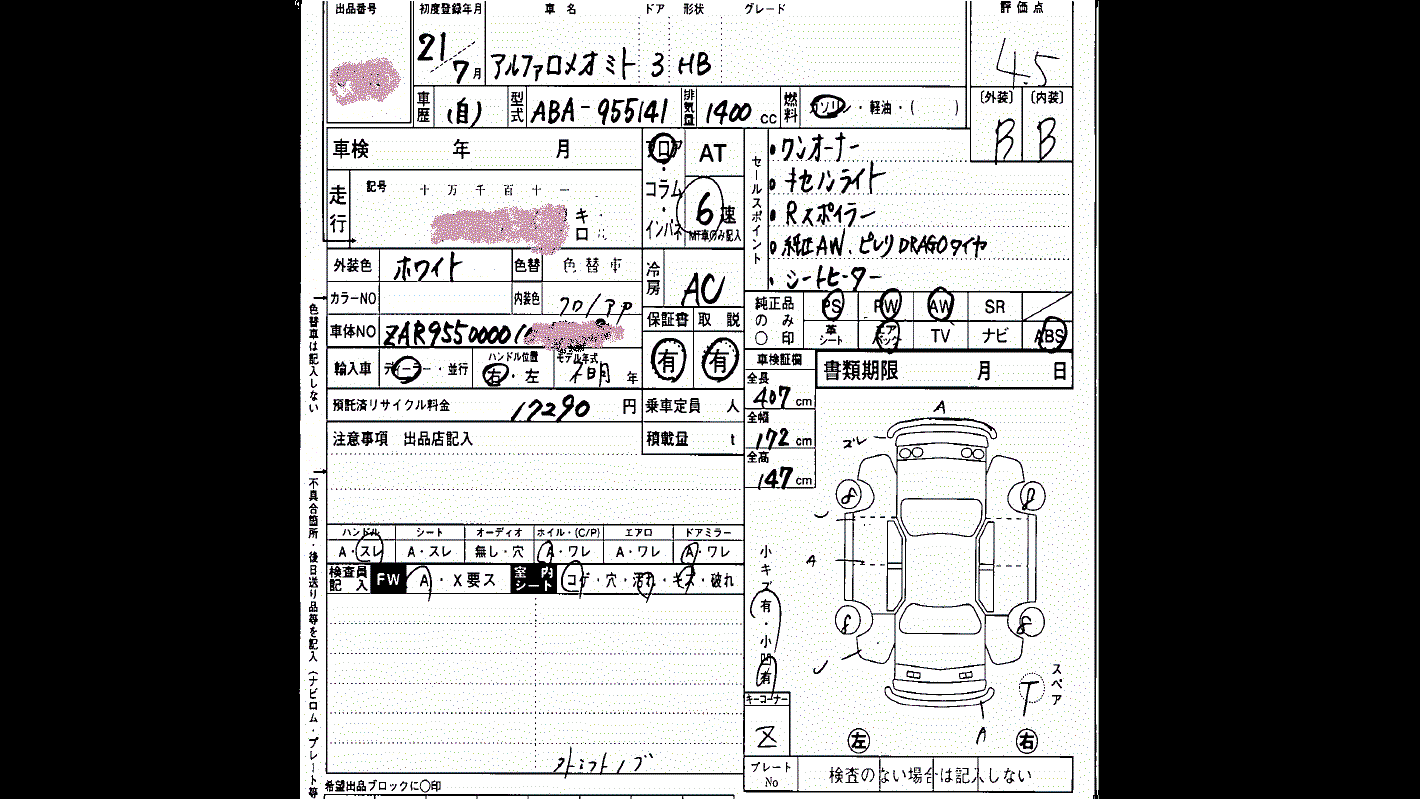 出品番号 初度登録年月 車名 ドア 形状 グレード 評価点
21/7月 アルファロメオミト 3 HB 4.5
車歴 (自) 型式 ABA-955141 排気量 1400 cc 燃料 ガソリン・軽油・( ) 〔外装〕 〔内装〕
B B
車検 年 月 フロア AT
セールスポイント
・ワンオーナー
・キセノンライト
・Rスポイラー
・純正AW、ピレリDRAGOタイヤ
・シートヒーター
走行 記号 十万千百十一 キロ
コラム・インパネ 6速 MT車のみ記入
外装色 ホワイト 色替 色替車 冷房 AC
カラーNO 内装色 クロ/
保証書 取説
有 有
純正品のみ〇印 PS PW AW SR
革シート エアバック TV ナビ ABS
車体NO ZAR9550000
輸入車 ディーラー・並行 ハンドル位置 右・左 モデル年式 不明 年
車検証欄 書類期限 月 日
全長 407 cm
全幅 172 cm
全高 147 cm
預託済リサイクル料金 17290 円 乗車定員 人
注意事項 出品店記入 積載量 t
A
ズレ
8 8
A
8 8
A
ハンドル シート オーディオ ホイル・(C/P) エアロ ドアミラー
A・スレ A・スレ 無し・穴 A・ワレ A・ワレ A・ワレ
検査員記入 FW A・X要ス 室内シート コゲ・穴・汚れ・キズ・破れ
小キズ有・小凹有
スペア T
キーコーナー
左 右
シフトノブ
プレートNo 検査のない場合は記入しない
希望出品ブロックに〇印
色替車は記入しない
不具合箇所・後日送り品等を記入(ナビロム・プレート等